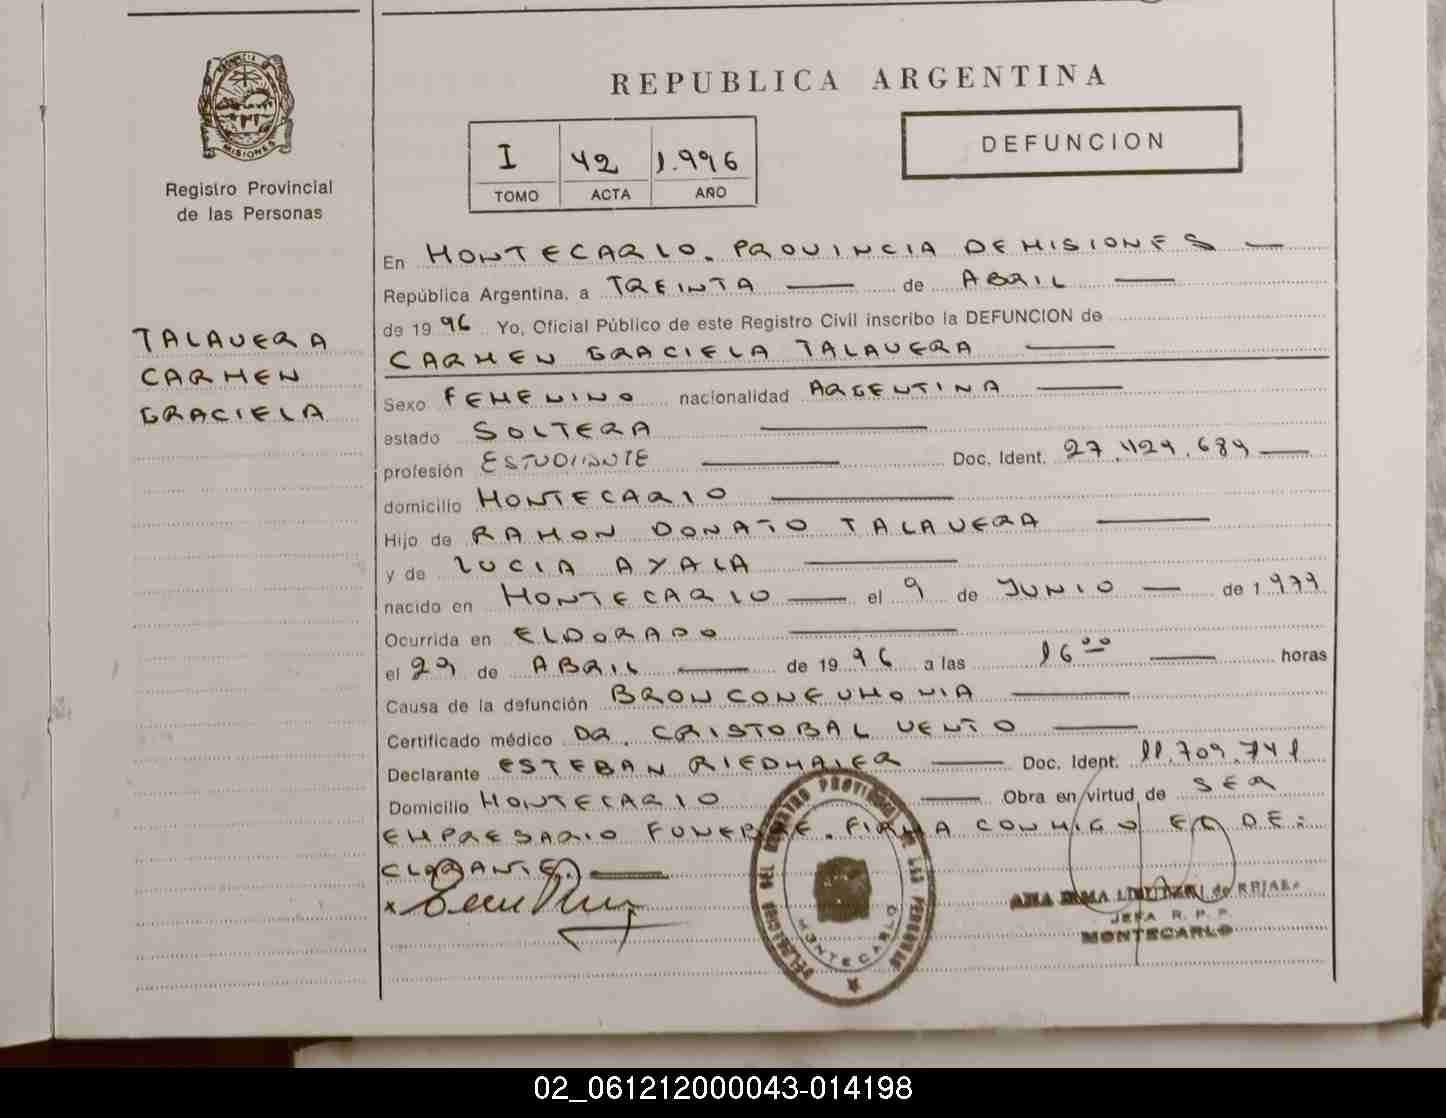 REPUBLICA ARGENTINA
DEFUNCION
I 42 1.996
TOMO ACTA AÑO
PROVINCIA
MISIONES
Registro Provincial
de las Personas
TALAVERA
CARMEN
GRACIELA
En MONTECARLO. PROVINCIA DE MISIONES
República Argentina, a TREINTA de ABRIL
de 1996 Yo, Oficial Público de este Registro Civil inscribo la DEFUNCION de
CARMEN GRACIELA TALAVERA
Sexo FEMENINO nacionalidad ARGENTINA
estado SOLTERA
profesión ESTUDIANTE Doc. Ident. 27.429.689
domicilio MONTECARLO
Hijo de RAMON DONATO TALAVERA
y de LUCIA AYALA
nacido en MONTECARLO el 9 de JUNIO de 1979
Ocurrida en ELDORADO
el 29 de ABRIL de 1996 a las 16 00 horas
Causa de la defunción BRONCONEUMONIA
Certificado médico DR. CRISTOBAL VENTO
Declarante ESTEBAN RIEDMAIER Doc. Ident. 11.709.741
Domicilio MONTECARLO Obra en virtud de SER
EMPRESARIO FUNEBRE. FIRMA CONMIGO EL DE:
CLARANTE.
DELEGACION DEL REGISTRO PROVINCIAL DE LAS PERSONAS
MONTECARLO
ANA IRMA de
JEFA R. P. P.
MONTECARLO
02_061212000043-014198